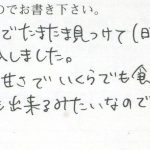 のでお書き下さい。
でたまたま見つけて(日
入しました。
甘さでいくらでも食
も出来るみたいなので